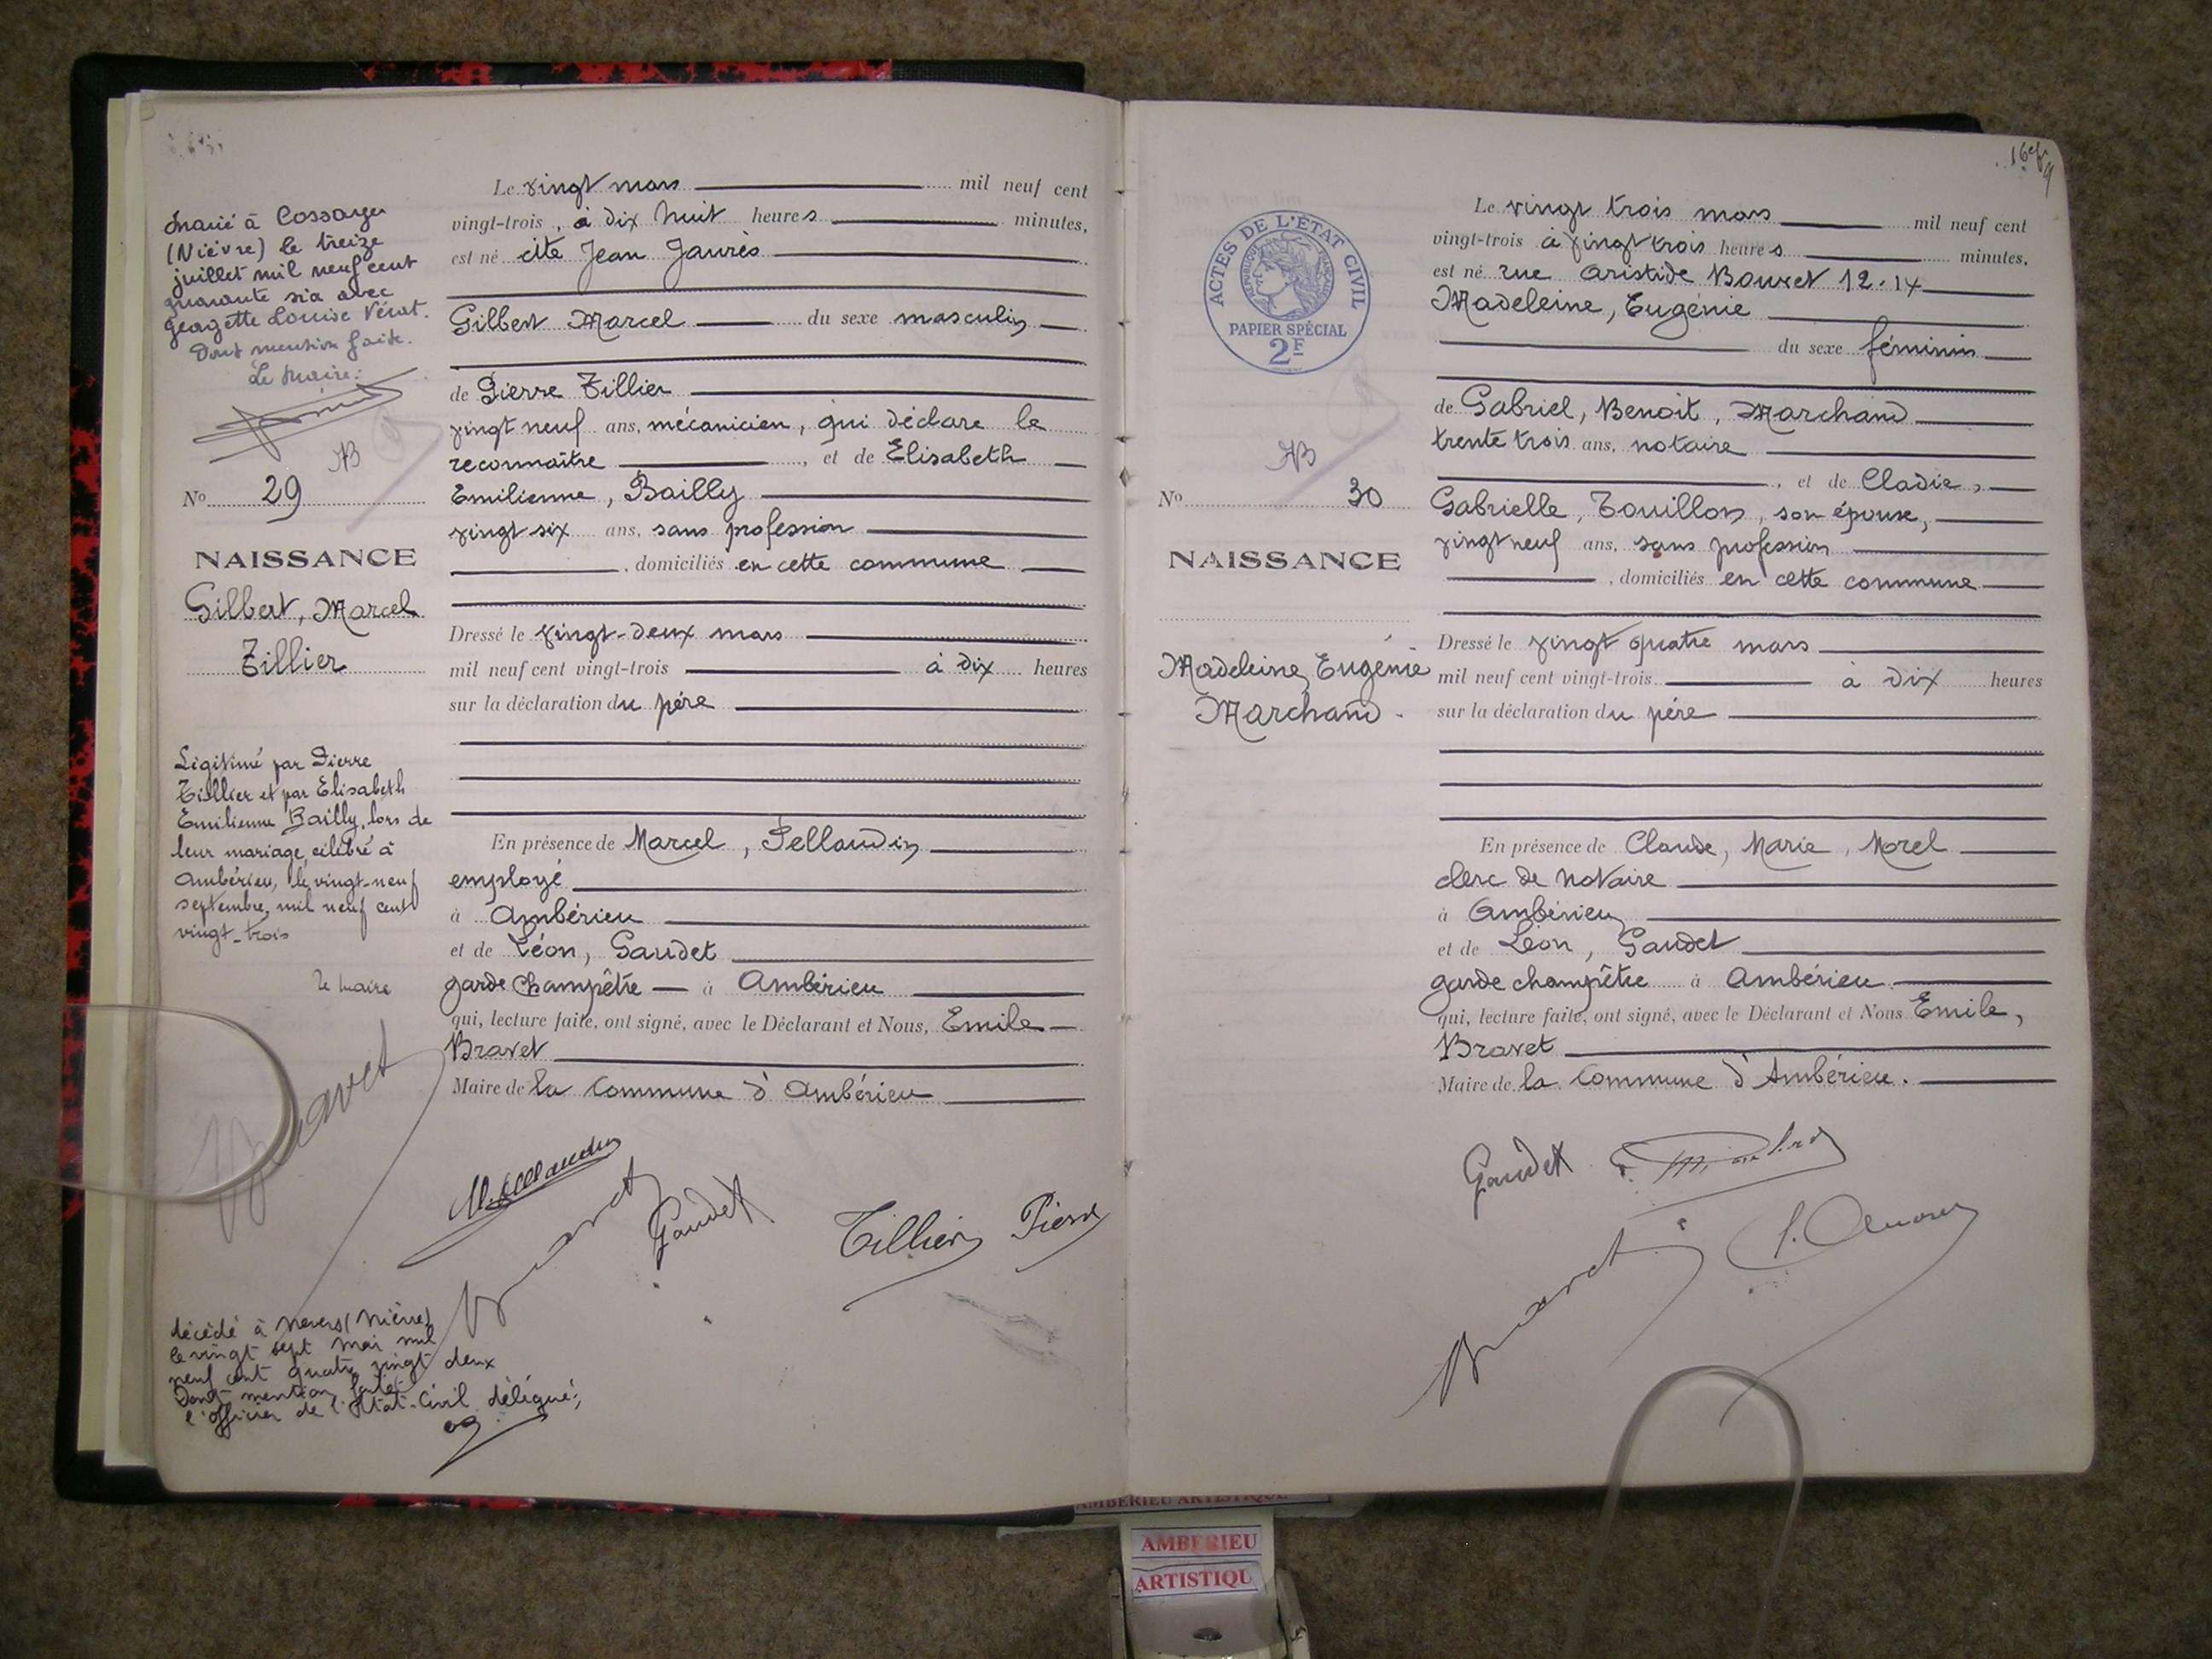 marié à Cossaye
(Nièvre) le treize
juillet mil neuf cent
quarante six avec
Georgette Louise Vérat.
Dont mention faite.
Le Maire:
N° 29
NAISSANCE
Gilbert, Marcel
Tillier
Légitimé par Pierre
Tillier et par Elisabeth
Emilienne Bailly, lors de
leur mariage, célébré à
Ambérieu, le vingt-neuf
septembre, mil neuf cent
vingt-trois
le maire
Bravet
décédé à Nevers (Nièvre)
le vingt sept mai mil
neuf cent quatre vingt deux
Dont mention faite
l'officier de l'Etat-Civil délégué;
Le vingt mars mil neuf cent
vingt-trois, à dix huit heures minutes,
est né cité Jean Jaurès
Gilbert Marcel du sexe masculin
de Pierre Tillier
vingt neuf ans, mécanicien, qui déclare le
reconnaître, et de Elisabeth
Emilienne, Bailly
vingt six ans, sans profession
, domiciliés en cette commune
Dressé le vingt-deux mars
mil neuf cent vingt-trois à dix heures
sur la déclaration du père
En présence de Marcel, Pellaudin
employé
à Ambérieu
et de Léon, Gaudet
garde champêtre à Ambérieu
qui, lecture faite, ont signé, avec le Déclarant et Nous, Emile
Bravet
Maire de la commune d'Ambérieu
Bravet
Gaudet
Tillier Pierre
ACTES DE L'ÉTAT CIVIL
PAPIER SPÉCIAL
2F
N° 30
NAISSANCE
Madeleine, Eugénie
Marchand
Le vingt trois mars mil neuf cent
vingt-trois à vingt trois heures minutes,
est né rue Aristide Bouvet 12-14
Madeleine, Eugénie
du sexe féminin
de Gabriel, Benoit, Marchand
trente trois ans, notaire
, et de Cladie,
Gabrielle, Touillon, son épouse,
vingt neuf ans, sans profession
, domiciliés en cette commune
Dressé le vingt quatre mars
mil neuf cent vingt-trois à dix heures
sur la déclaration du père
En présence de Claude, Marie, Morel
clerc de notaire
à Ambérieu
et de Léon, Gaudet
garde champêtre à Ambérieu
qui, lecture faite, ont signé, avec le Déclarant et Nous Emile,
Bravet
Maire de la commune d'Ambérieu.
Gaudet
Bravet
AMBERIEU ARTISTIQUE
AMBERIEU
ARTISTIQU